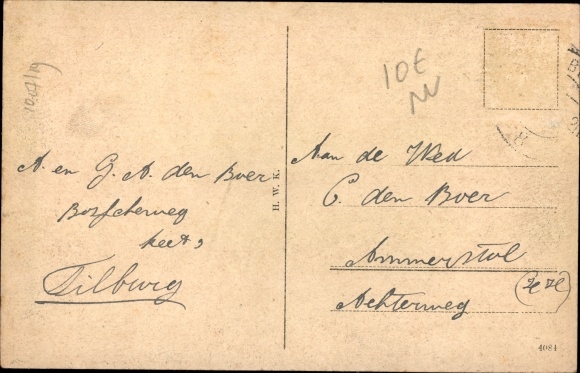 A. en G. A. den Boer
Tilburg
H. W. K.
10E
Aan de Wed
C. den Boer
Ammerstol
Achterweg
(Z H)
4084